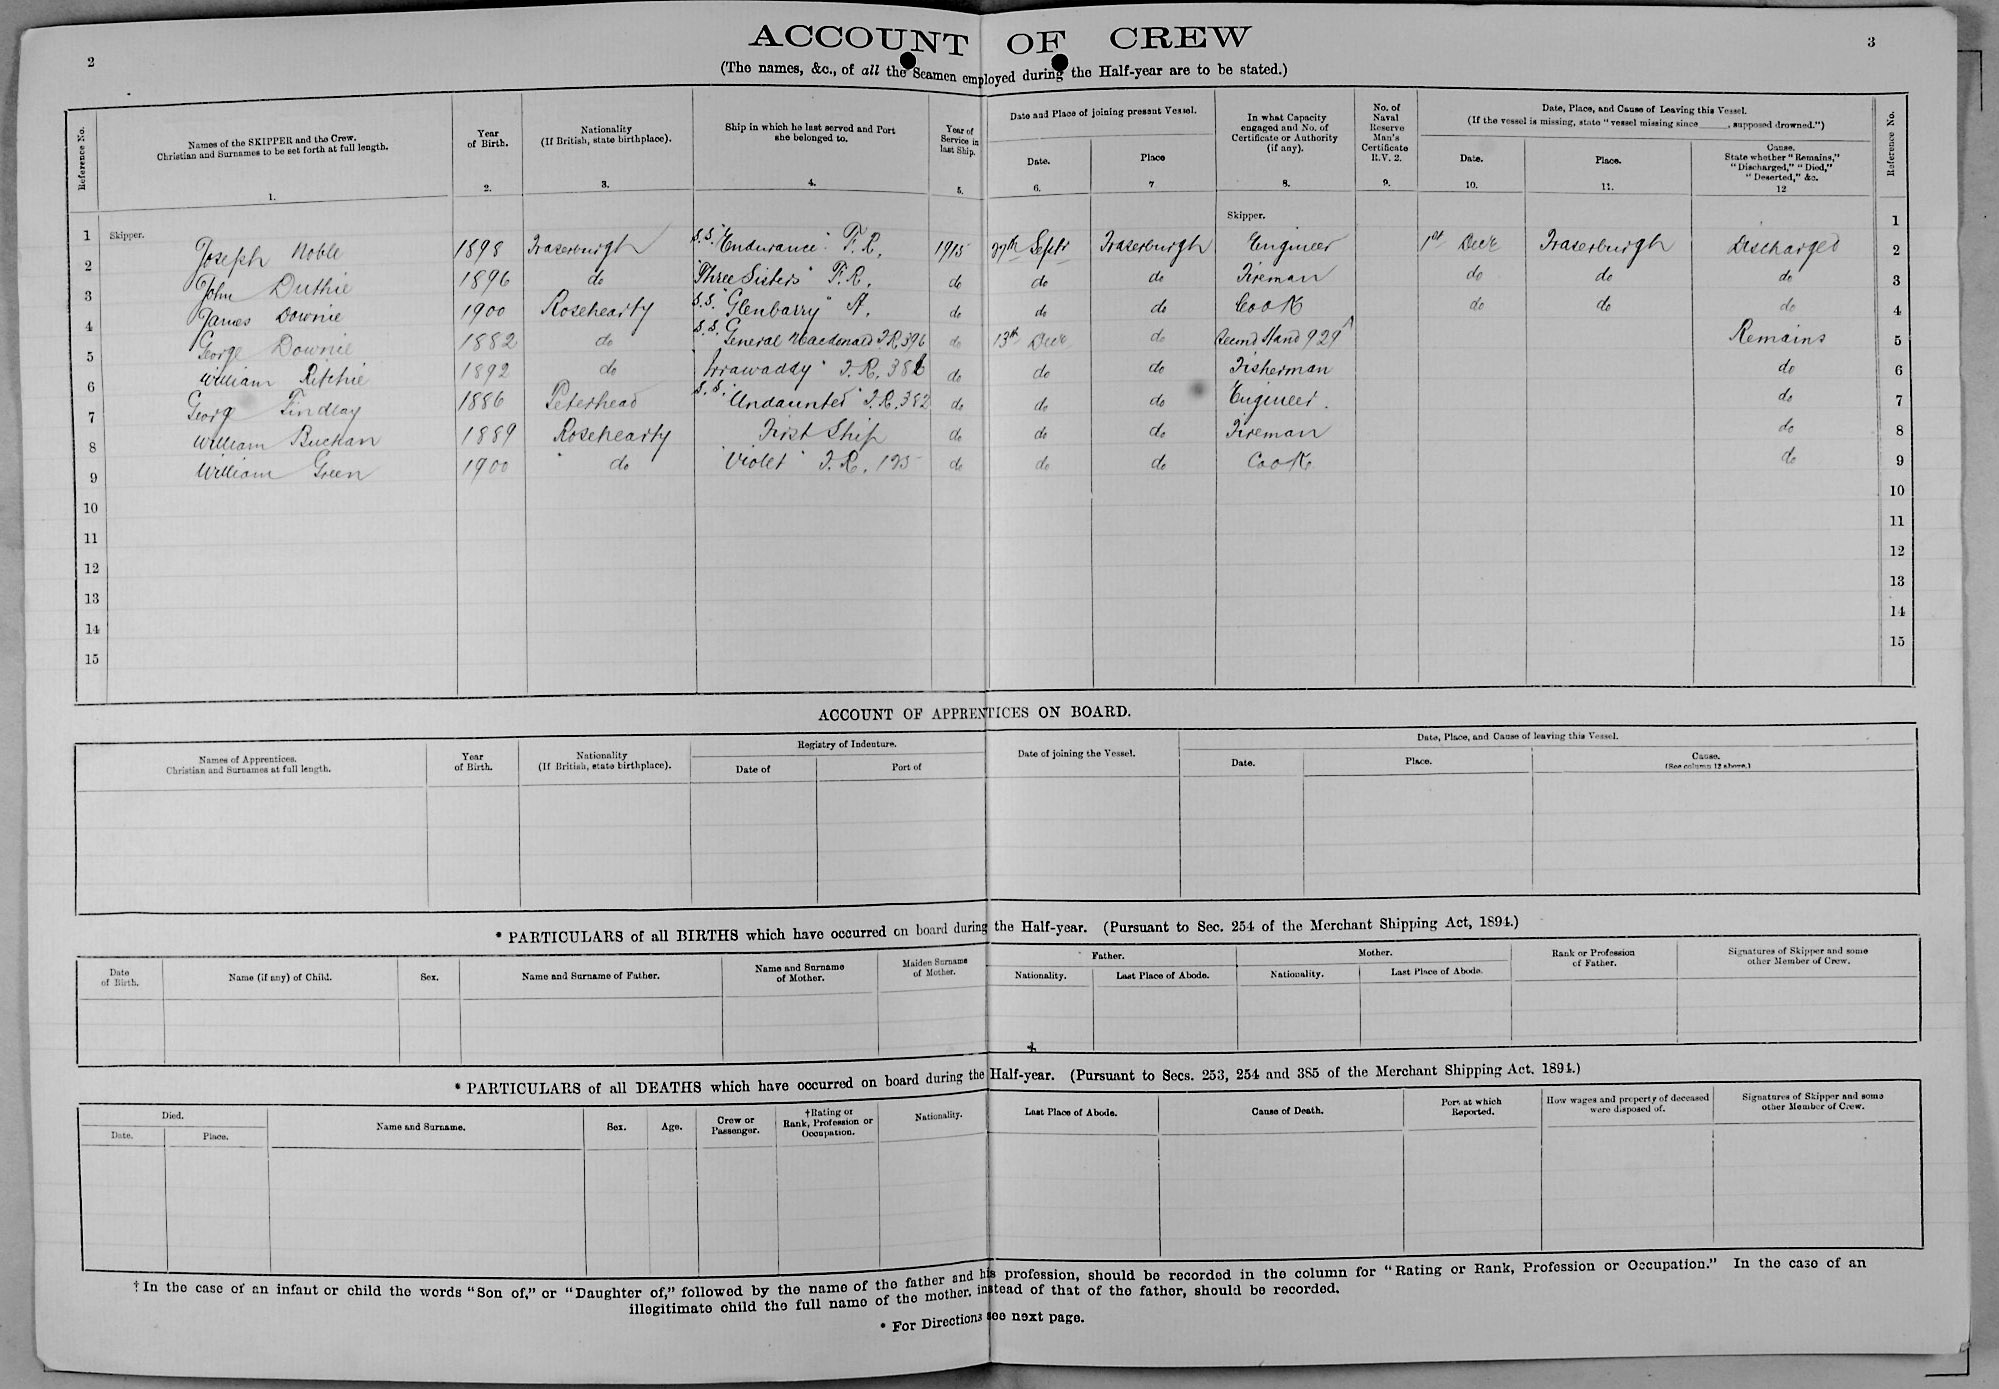 2
ACCOUNT OF CREW
3
(The names, &c., of all the Seamen employed during the Half-year are to be stated.)
Reference No.
Names of the SKIPPER and the Crew.
Christian and Surnames to be set forth at full length.
1.
Year
of Birth.
2.
Nationality
(If British, state birthplace).
3.
Ship in which he last served and Port
she belonged to.
4.
Year of
Service in
last Ship.
5.
Date and Place of joining present Vessel.
Date.
6.
Place
7
In what Capacity
engaged and No. of
Certificate or Authority
(if any).
8.
No. of
Naval
Reserve
Man's
Certificate
R.V. 2.
9.
Date, Place, and Cause of Leaving this Vessel.
(If the vessel is missing, state "vessel missing since_____, supposed drowned.")
Date.
10.
Place.
11.
Cause.
State whether "Remains,"
"Discharged," "Died,"
"Deserted," &c.
12
Reference No.
1 Skipper. Skipper. 1
2 Joseph Noble 1898 Fraserburgh S.S. "Endurance" F.R. 1915 27th Sept Fraserburgh Engineer 1st Decr Fraserburgh Discharged 2
3 John Duthie 1896 do "Three Sisters" F.R. do do do Fireman do do do 3
4 James Downie 1900 Rosehearty S.S. "Glenbarry" A. do do do Cook do do do 4
5 George Downie 1882 do S.S. General Macdonald F.R. 396 do 13th Decr do Second Hand 929 Remains 5
6 William Ritchie 1892 do Irrawaddy" F.R. 386 do do do Fisherman do 6
7 Georg Findlay 1886 Peterhead S.S. "Undaunted" F.R. 382 do do do Engineer. do 7
8 William Buchan 1889 Rosehearty First Ship do do do Fireman do 8
9 William Green 1900 " do "Violet" F.R. 195 do do do Cook do 9
10 10
11 11
12 12
13 13
14 14
15 15
ACCOUNT OF APPRENTICES ON BOARD.
Names of Apprentices.
Christian and Surnames at full length.
Year
of Birth.
Nationality
(If British, state birthplace).
Registry of Indenture.
Date of
Port of
Date of joining the Vessel.
Date, Place, and Cause of leaving this Vessel.
Date.
Place.
Cause.
(See column 12 above.)
* PARTICULARS of all BIRTHS which have occurred on board during the Half-year. (Pursuant to Sec. 254 of the Merchant Shipping Act, 1894.)
Date
of Birth.
Name (if any) of Child.
Sex.
Name and Surname of Father.
Name and Surname
of Mother.
Maiden Surname
of Mother.
Father.
Nationality.
Last Place of Abode.
Mother.
Nationality.
Last Place of Abode.
Rank or Profession
of Father.
Signatures of Skipper and some
other Member of Crew.
* PARTICULARS of all DEATHS which have occurred on board during the Half-year. (Pursuant to Secs. 253, 254 and 385 of the Merchant Shipping Act. 1894.)
Died.
Date.
Place.
Name and Surname.
Sex.
Age.
Crew or
Passenger.
†Rating or
Rank, Profession or
Occupation.
Nationality.
Last Place of Abode.
Cause of Death.
Port at which
Reported.
How wages and property of deceased
were disposed of.
Signatures of Skipper and some
other Member of Crew.
†In the case of an infant or child the words "Son of," or "Daughter of," followed by the name of the father and his profession, should be recorded in the column for "Rating or Rank, Profession or Occupation." In the case of an
illegitimate child the full name of the mother, instead of that of the father, should be recorded.
* For Directions see next page.